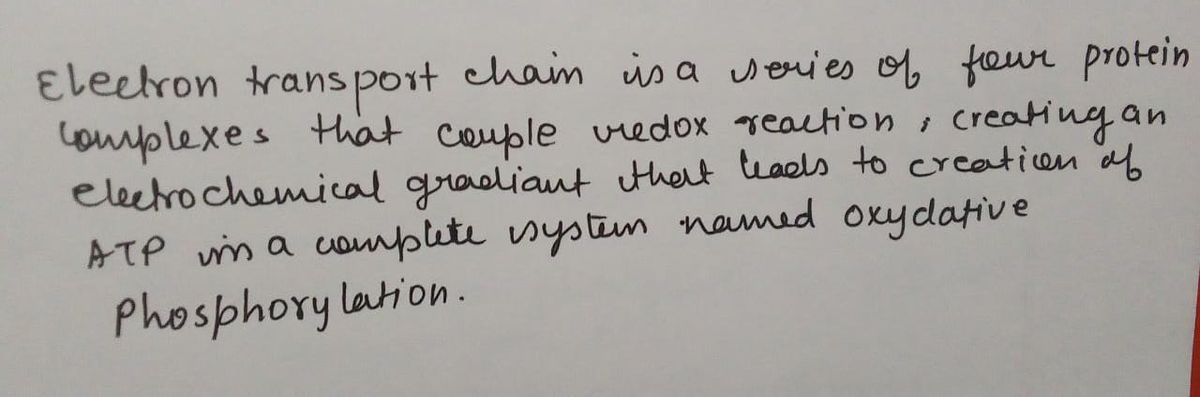 Electron transport chain is a series of four protein
Complexes that couple redox reaction, creating an
electrochemical gradiant that leads to creation of
ATP in a complete system named oxydative
Phosphorylation.